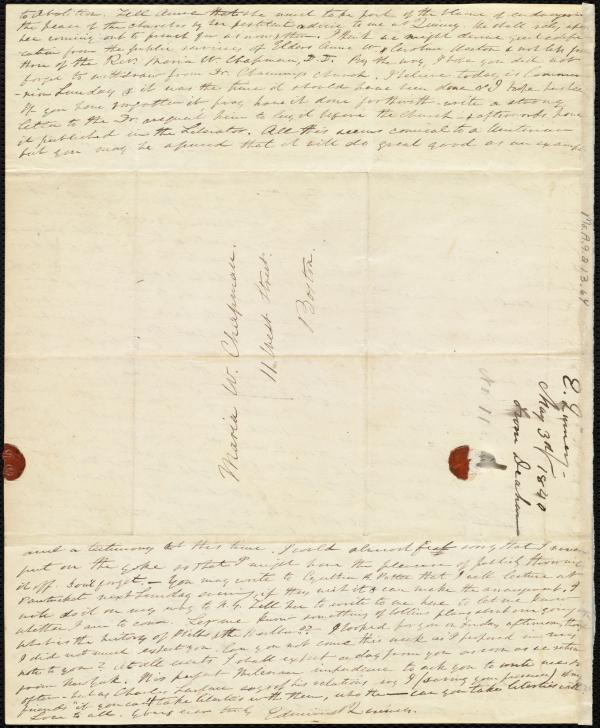 to Abolition. Tell Anne that she must take part of the blame of endangering
the peace of the churches by her pestilent advice to me at Quincy. We shall yet
see coming out to preach you as now & then. I think we might derive great edifi-
cation from the public services of Elders Anne W. & Caroline Weston & not less from
those of the Rev. Maria W. Chapman, D.D. By the way, I hope you did not
forget to withdraw from Dr. Channing's church. I believe today is Commu-
nion Sunday & it was the time it should have been done &
If you have forgotten it pray have it done forthwith - write a strong
letter to the Dr. request him to lay it before the church - & afterwards have
it published in the Liberator. All this seems comical to a Unitarian
but you may be assured that it will do great good as an example
Maria W. Chapman.
11 West Street.
Boston.
E. Quincy
May 3d/1840
from Dedham
No 11
Ms.A.9.2.13.64
and a testimony at this time. I could almost feel sorry that I never
put on the yoke so that I might have the pleasure of publicly throwing
it off. Don't forget. - You may write to that I will lecture at
Pawtucket next Sunday evening, if they wish it & can make the arrangements. I
do it on my way to N.Y. Tell to write to me here to let me know
whether I am to come. Let me know something of
what is the history of I looked for you on Friday afternoon, tho'
I did not much expect you. Can you not come this week as I proposed in my
note to you? At all events I shall expect a day from you as soon as we return
from New York. It is perfect impudence to ask you to write
often - but as Charles says of his relations (saving your presence)
friends "if you can't take liberties with them, who the - can you take liberties with
Love to all. Yours very truly Edmund Quincy